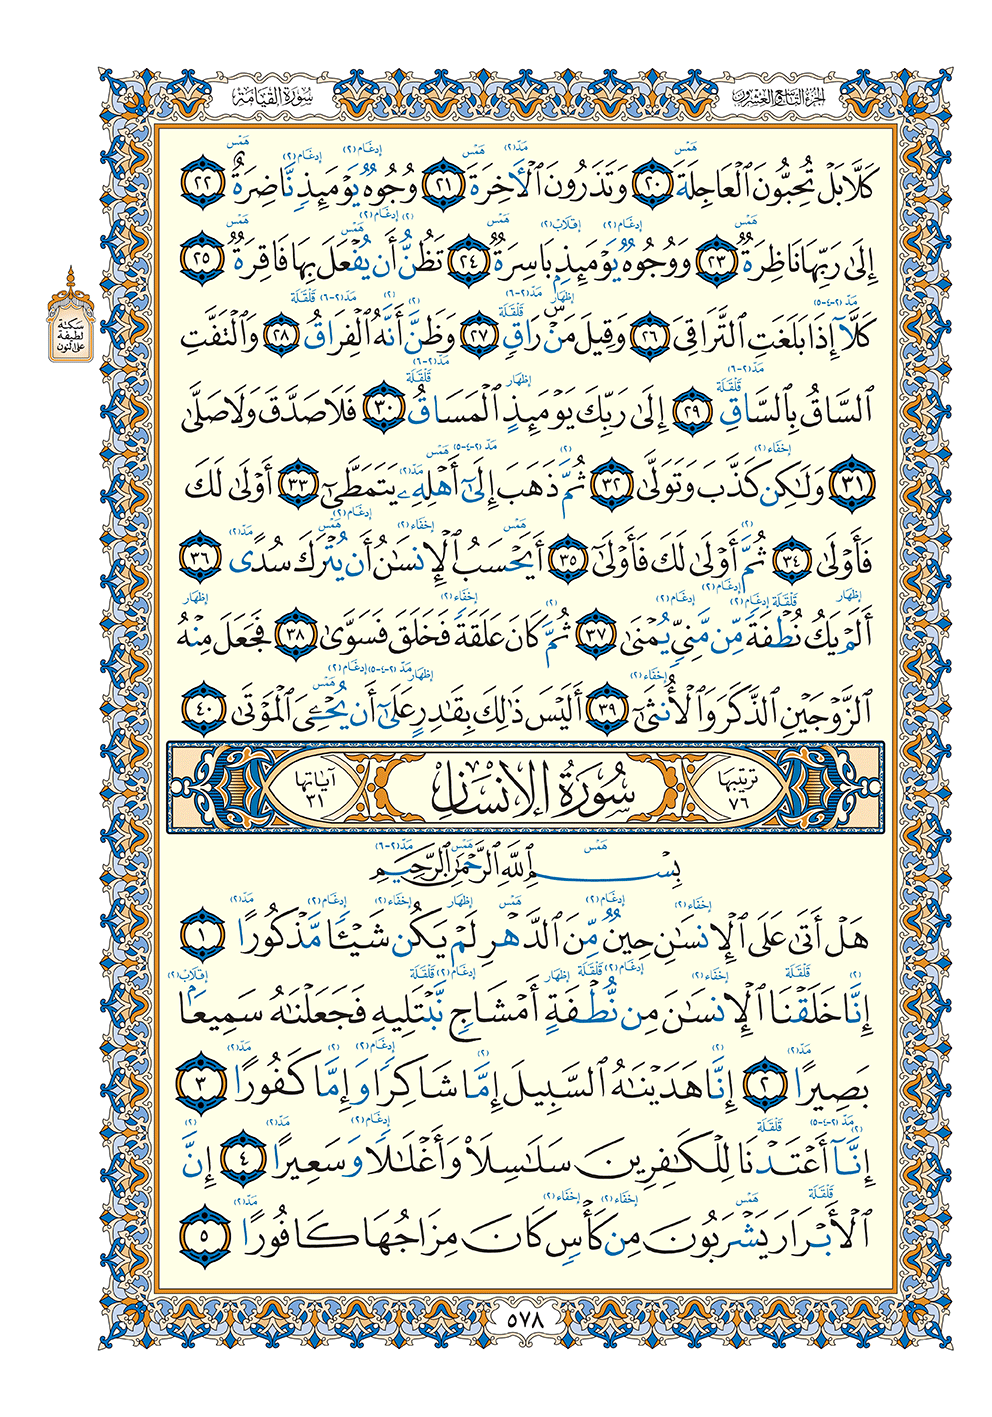 الجزء التاسع والعشرون
سورة القيامة
كَلَّا بَلْ تُحِبُّونَ ٱلْعَاجِلَةَ ٢٠ وَتَذَرُونَ ٱلْأَخِرَةَ ٢١ وُجُوهٌ يَوْمَئِذٍ نَّاضِرَةٌ ٢٢
إِلَىٰ رَبِّهَا نَاظِرَةٌ ٢٣ وَوُجُوهٌ يَوْمَئِذٍ بَاسِرَةٌ ٢٤ تَظُنُّ أَن يُفْعَلَ بِهَا فَاقِرَةٌ ٢٥
كَلَّآ إِذَا بَلَغَتِ ٱلتَّرَاقِىَ ٢٦ وَقِيلَ مَنْۜ رَاقٍ ٢٧ وَظَنَّ أَنَّهُ ٱلْفِرَاقُ ٢٨ وَٱلْتَفَّتِ
سكتة لطيفة على النون
ٱلسَّاقُ بِٱلسَّاقِ ٢٩ إِلَىٰ رَبِّكَ يَوْمَئِذٍ ٱلْمَسَاقُ ٣٠ فَلَا صَدَّقَ وَلَا صَلَّىٰ
٣١ وَلَٰكِن كَذَّبَ وَتَوَلَّىٰ ٣٢ ثُمَّ ذَهَبَ إِلَىٰٓ أَهْلِهِۦ يَتَمَطَّىٰٓ ٣٣ أَوْلَىٰ لَكَ
فَأَوْلَىٰ ٣٤ ثُمَّ أَوْلَىٰ لَكَ فَأَوْلَىٰٓ ٣٥ أَيَحْسَبُ ٱلْإِنسَٰنُ أَن يُتْرَكَ سُدًى ٣٦
أَلَمْ يَكُ نُطْفَةً مِّن مَّنِىٍّ يُمْنَىٰ ٣٧ ثُمَّ كَانَ عَلَقَةً فَخَلَقَ فَسَوَّىٰ ٣٨ فَجَعَلَ مِنْهُ
ٱلزَّوْجَيْنِ ٱلذَّكَرَ وَٱلْأُنثَىٰٓ ٣٩ أَلَيْسَ ذَٰلِكَ بِقَٰدِرٍ عَلَىٰٓ أَن يُحْـِۧىَ ٱلْمَوْتَىٰ ٤٠
ترتيبها ٧٦ سُورَةُ الإِنسَان آياتها ٣١
بِسْمِ ٱللَّهِ ٱلرَّحْمَٰنِ ٱلرَّحِيمِ
هَلْ أَتَىٰ عَلَى ٱلْإِنسَٰنِ حِينٌ مِّنَ ٱلدَّهْرِ لَمْ يَكُن شَيْـًٔا مَّذْكُورًا ١
إِنَّا خَلَقْنَا ٱلْإِنسَٰنَ مِن نُّطْفَةٍ أَمْشَاجٍ نَّبْتَلِيهِ فَجَعَلْنَٰهُ سَمِيعًۢا
بَصِيرًا ٢ إِنَّا هَدَيْنَٰهُ ٱلسَّبِيلَ إِمَّا شَاكِرًا وَإِمَّا كَفُورًا ٣
إِنَّآ أَعْتَدْنَا لِلْكَٰفِرِينَ سَلَٰسِلَا۟ وَأَغْلَٰلًا وَسَعِيرًا ٤ إِنَّ
ٱلْأَبْرَارَ يَشْرَبُونَ مِن كَأْسٍ كَانَ مِزَاجُهَا كَافُورًا ٥
٥٧٨